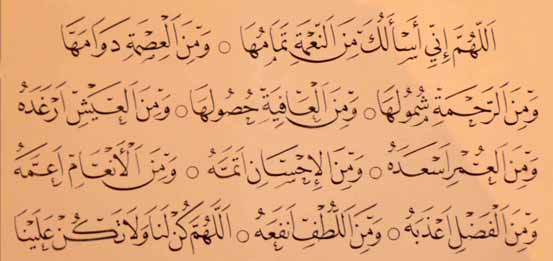 اَللّٰهُمَّ إِنِّي أَسْأَلُكَ مِنَ النِّعْمَةِ تَمَامَهَا ○ وَمِنَ الْعِصْمَةِ دَوَامَهَا
وَمِنَ الرَّحْمَةِ شُمُولَهَا ○ وَمِنَ الْعَافِيَةِ حُصُولَهَا ○ وَمِنَ الْعَيْشِ اَرْغَدَهُ
وَمِنَ الْعُمْرِ اَسْعَدَهُ ○ وَمِنَ الْاِحْسَانِ اَتَمَّهُ ○ وَمِنَ الْأَنْعَامِ اَعَمَّهُ
وَمِنَ الْفَضْلِ اَعْذَبَهُ ○ وَمِنَ اللُّطْفِ اَنْفَعَهُ ○ اَللّٰهُمَّ كُنْ لَنَا وَلَا تَكُنْ عَلَيْنَا